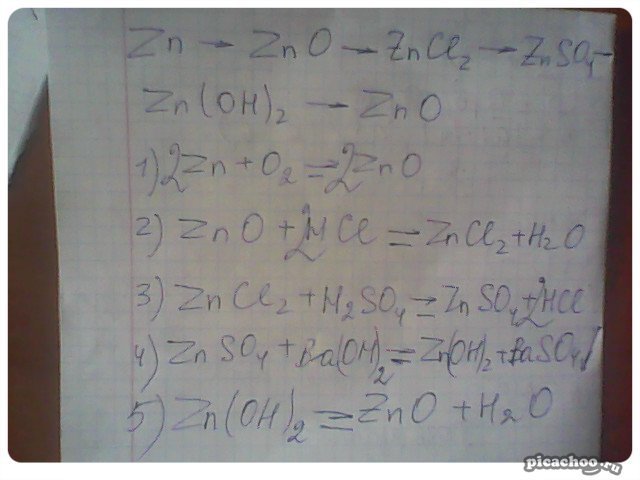 Zn → ZnO → ZnCl₂ → ZnSO₄ –
Zn(OH)₂ → ZnO
1) 2Zn + O₂ = 2ZnO
2) ZnO + 2HCl = ZnCl₂ + H₂O
3) ZnCl₂ + H₂SO₄ = ZnSO₄ + 2HCl
4) ZnSO₄ + Ba(OH)₂ = Zn(OH)₂ + BaSO₄↓
5) Zn(OH)₂ = ZnO + H₂O
picachoo.ru